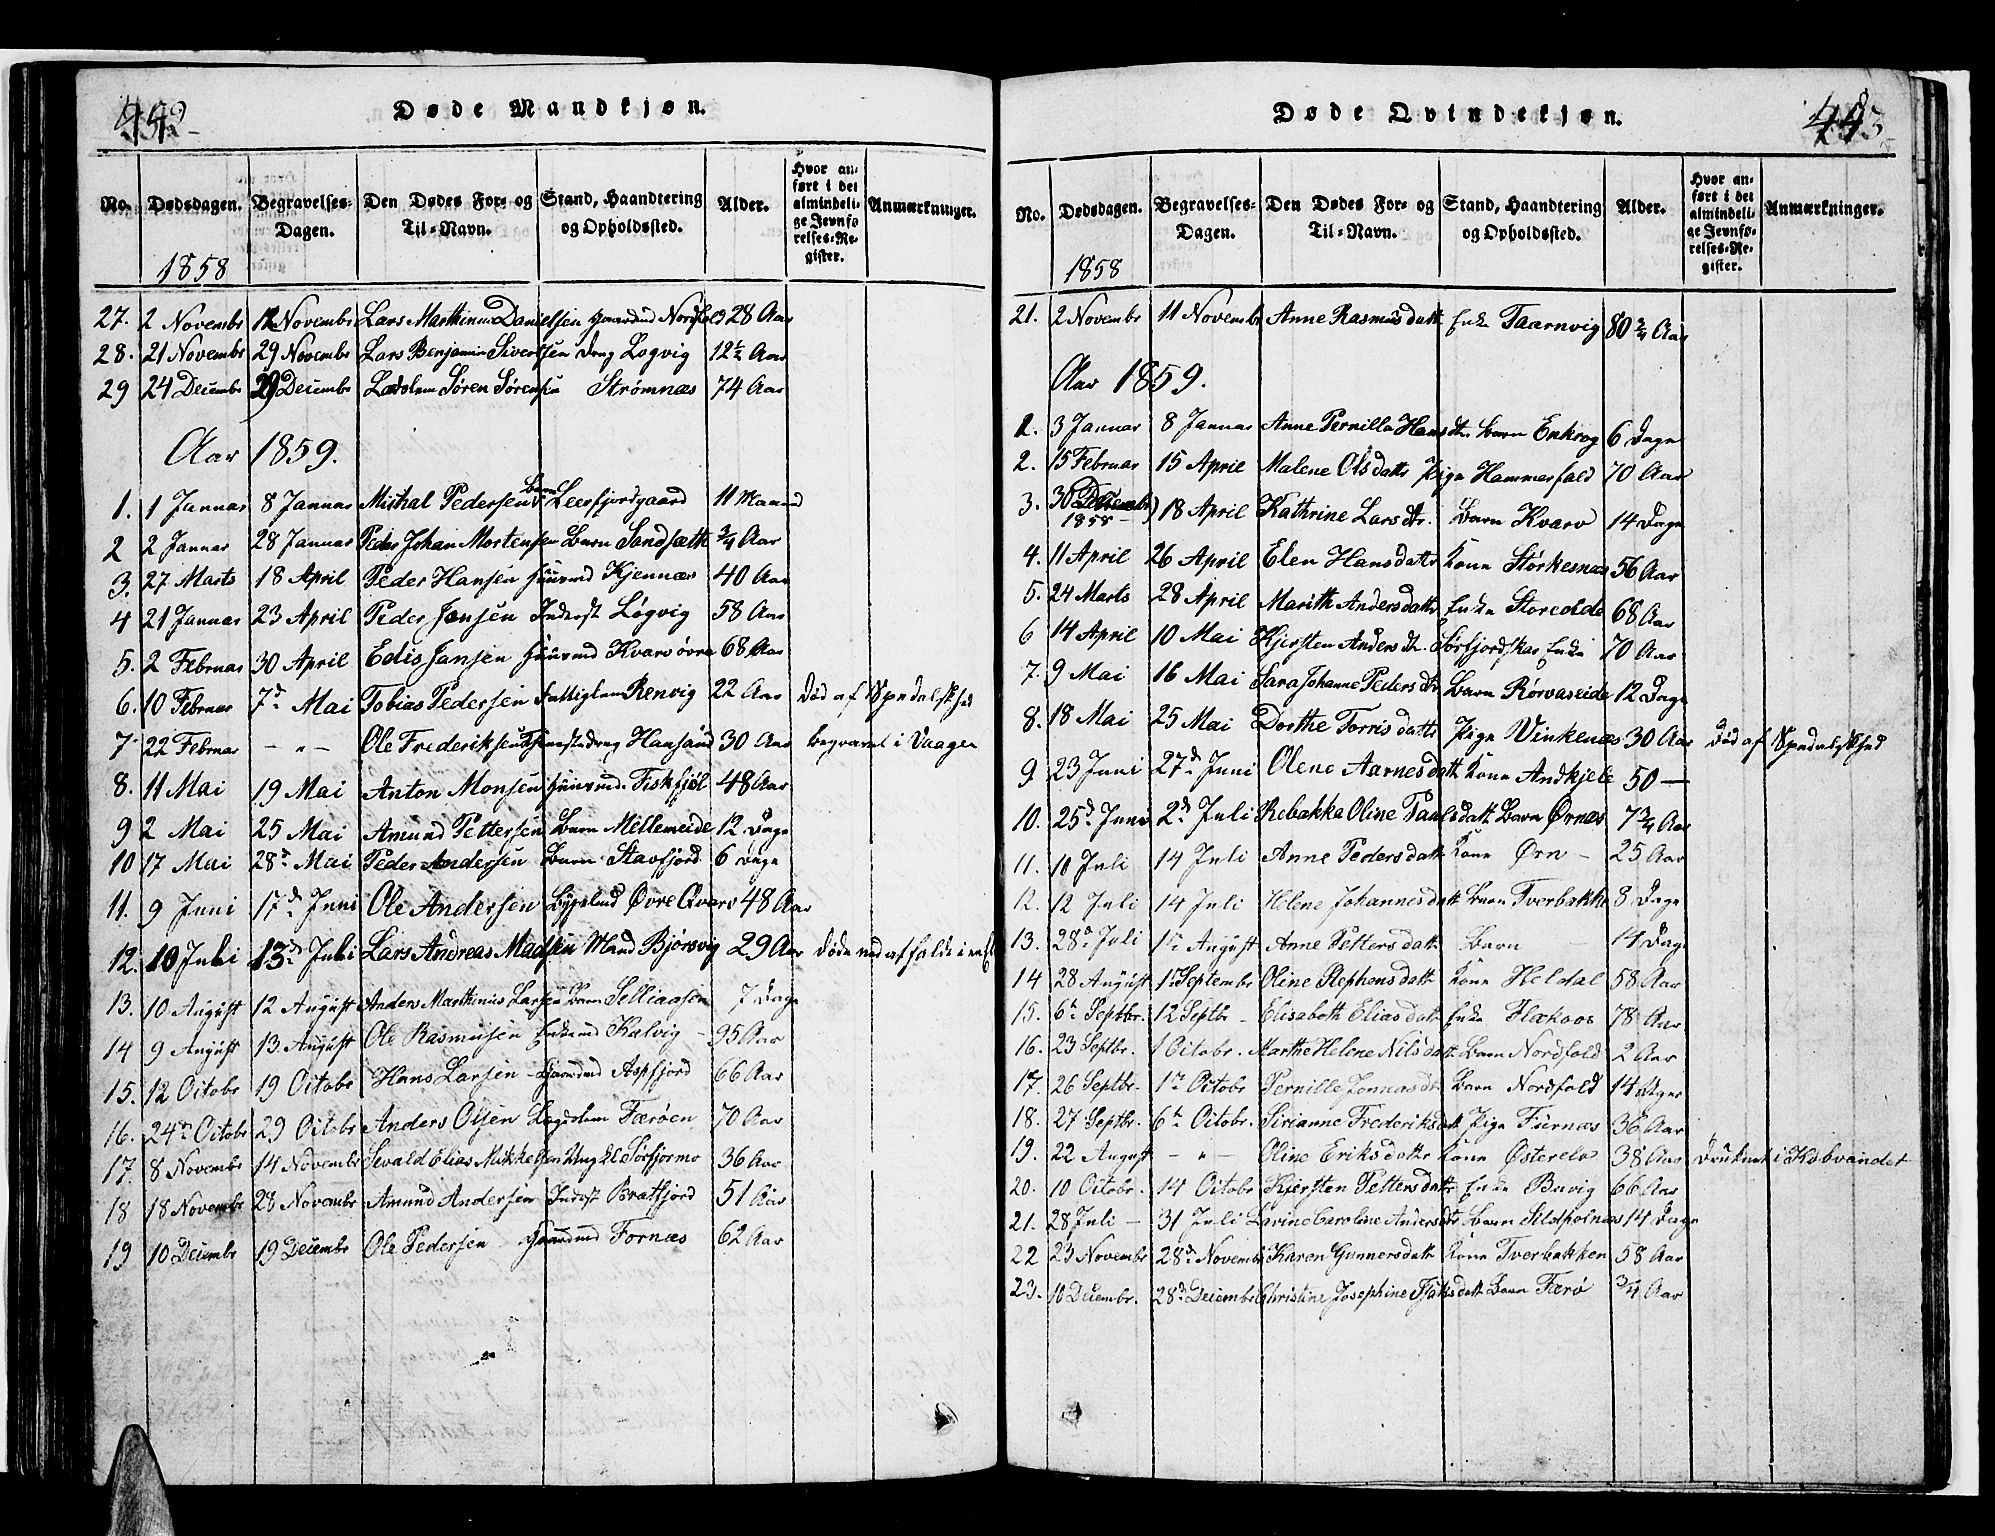 Døde Mandkjøn.
No. Dødsdagen. Begravelses-Dagen. Den Dødes For- og Til-Navn. Stand, Haandtering og Opholdssted. Alder. Hvor anført i det almindelige Jevnførelses-Register. Anmærkninger.
1858
27. 2 Novembr 12 Novembr Lars Marthinus Danielsen Gaardmd Nordfold 28 Aar
28. 21 Novembr 29 Novembr Lars Benjamin Sivertsen Dreng Løgvig 12½ Aar
29 24 Decembr 29 Decembr Søren Sørensen Strømnæs 74 Aar
Aar 1859.
1. 1 Januar 8 Januar Mikal Pedersen Barn Leerfjordgaard 11 Maaned
2 2 Januar 28 Januar Peder Johan Mortensen Barn Sandsæth ¾ Aar
3. 27 Marts 18 April Peder Hansen Huusmd Kjennæs 40 Aar
4 21 Januar 23 April Peder Jansen Inderst Løgvig 58 Aar
5. 2 Februar 30 April Edis Jansen Huusmd Kvarv øvre 68 Aar
6. 10 Februar 7d Mai Tobias Pedersen Fattiglem Renvig 22 Aar Død af Spedalskhed
7 22 Februar – " – Ole Frederiksen Tjenestedreng Hansøen 30 Aar begravet i Vaagen
8. 11 Mai 19 Mai Anton Monsen Huusmd. Fiskfjøl 48 Aar
9 2 Mai 25 Mai Amund Pettersen Barn Mellemeide 12 Dage
10 17 Mai 28d Mai Peder Andersen Barn Stavfjord 6 Dage
11. 9 Juni 17d Juni Ole Andersen Øvre Qvarv 48 Aar
12. 10 Juli 13d Juli Lars Andreas Madsen Mand Bjørsvig 29 Aar
13. 10 August 12 August Anders Marthinus Larsen Barn Selliaasen 7 Dage
14 9 August 13 August Ole Rasmussen Enkemd Kalvig – 95 Aar
15. 12 Octobr 19 Octobr Hans Larsen – Gaardmd Aspfjord 66 Aar
16. 24de Octobr 29 Octobr Anders Olsen Lægdslem Færøen 70 Aar
17. 8 Novembr 14 Novembr Sivald Elias Mikkelsen Ungkl Sørfjormo 36 Aar
18 18 Novembr 28 Novembr Amund Andersen Inderst Bratfjord 51 Aar
19 10 Decembr 19 Decembr Ole Pedersen Gaardmd Fornæs 62 Aar
Døde Qvindekjøn.
No. Dødsdagen. Begravelses-Dagen. Den Dødes For- og Til-Navn. Stand, Haandtering og Opholdssted. Alder. Hvor anført i det almindelige Jevnførelses-Register. Anmærkninger.
1858
21. 2 Novembr 11 Novembr Anne Rasmusdatt Enke Taarnvig 80 ¾ Aar
Aar 1859.
1. 3 Januar 8 Januar Anne Pernilla Hansdtr. Barn Enkrog 6 Dage
2. 15 Februar 15 April Malene Olsdattr Pige Hammerfald 70 Aar
3. 30 Decembr 1858 – ) 18 April Kathrine Larsdtr. Barn Kvarv 14 Dage
4. 11 April 26 April Elen Hansdattr Kone Størkesnæs 56 Aar
5. 24 Marts 28 April Marith Andersdattr Enke Storeolde 68 Aar
6 14 April 10 Mai Kjersten Andersdtr. Sørfjordskar Enke 70 Aar
7. 9 Mai 16 Mai Sara Johanne Pedersdtr Barn Rørvaseide 12 Dage
8. 18 Mai 25 Mai Dorthe Tornisdattr Pige Vinkenæs 30 Aar Død af Spedalskhed
9 23 Juni 27d Juni Olene Aarnesdatt Kone Andkjele 50 —
10. 25d Juni 2d Juli Rebakka Oline Paulsdatt Barn Ørnæs 7 ¾ Aar
11. 10 Juli 14 Juli Anne Pedersdatt Kone Ørn – 25 Aar
12. 12 Juli 14 Juli Helene Johannesdatt Barn Tverbakke 8 Dage
13. 28d Juli 1te August Anne Pettersdatt Barn 14 Dage
14 28 August 1te Septembr Oline Stephensdatt Kone Heldal 58 Aar
15. 6te Septbr. 12 Septbr – Elisabeth Eliasdatt Enke Flækaas 78 Aar
16. 23 Septbr. 1 Octobr. Marthe Helene Nilsdatt Barn Nordfold 2 Aar
17. 26 Septbr. 1te Octobr Pernille Jonnasdtr Barn Nordfold 14 Dage
18. 27 Septbr. 6te Octobr. Sirianne Frederiksdatt Pige Furnæs 36 Aar
19. 22 August – " – Oline Eriksdattr Kone Østerelv 38 Aar Druknet i Kobvandet
20. 10 Octobr. 14 Octobr Kjersten Pettersdattr Enke Buvig 66 Aar
21. 28 Juli – 31 Juli Lavine Caroline Andersdtr Barn Sildpolnæs 14 Dage
22 23 Novembr 28d Novembr Karen Gunnersdatt Kone Tverbakken 58 Aar
23. 10 Decembr. 28d Decembr Christine Josephine Isaksdatt Barn Færø ¾ Aar